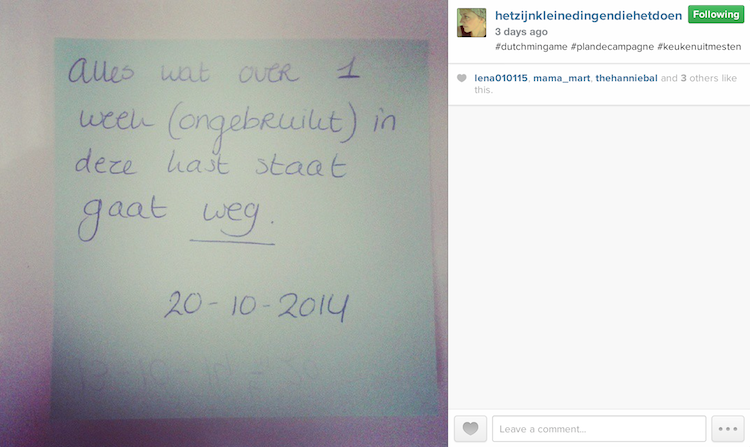 Alles wat over 1
week (ongebruikt) in
deze kast staat
gaat weg.
20-10-2014
hetzijnkleinedingendiehetdoen
Following
3 days ago
#dutchmingame #plandecampagne #keukenuitmesten
lena010115, mama_mart, thehanniebal and 3 others like
this.
Leave a comment...